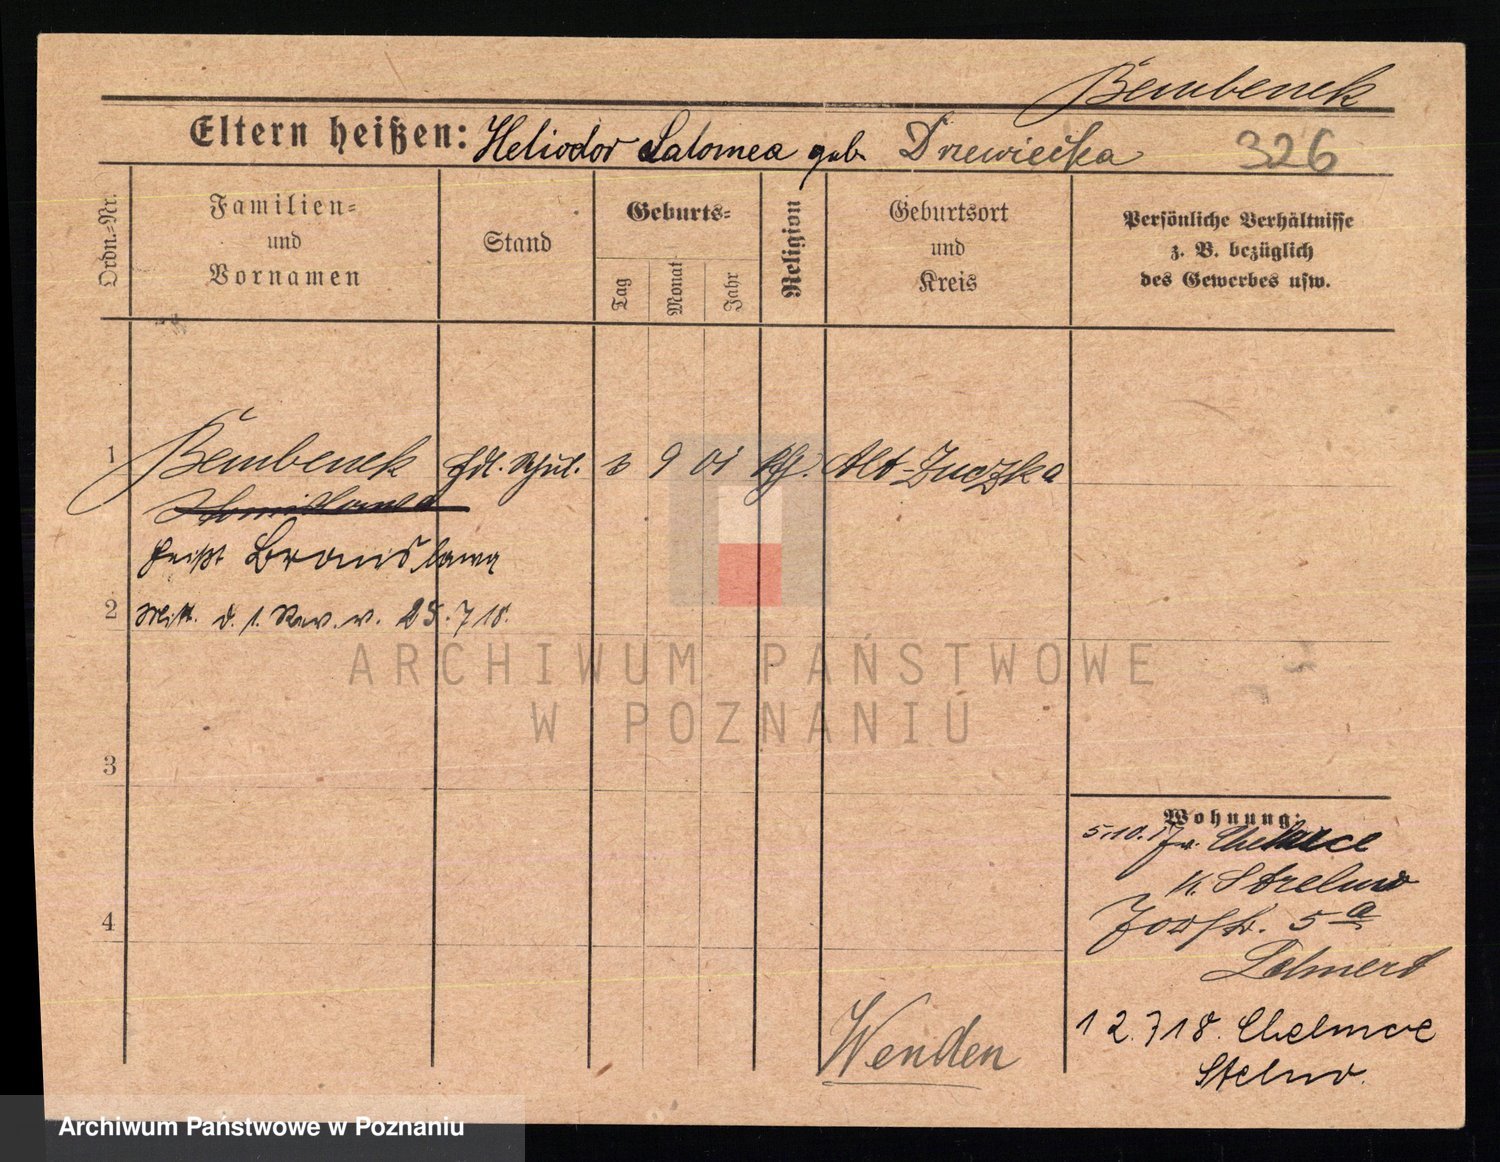 Bembenek
Eltern heißen: Heliodor Salomea geb. Drzewiecka 326
Ordn.-Nr.
Familien-
und
Vornamen
Stand
Geburts-
Tag
Monat
Jahr
Religion
Geburtsort
und
Kreis
Persönliche Verhältnisse
z. B. bezüglich
des Gewerbes usw.
1 Bembenek 9 01 Alt-
heißt Bronislawa
2 Mitt. d. 1. Rev. v. 25.7 18.
3
4
Wohnung:
5.10.
K. Strelno
5a
12.718. Chelmce
Wenden
ARCHIWUM PAŃSTWOWE
W POZNANIU
Archiwum Państwowe w Poznaniu